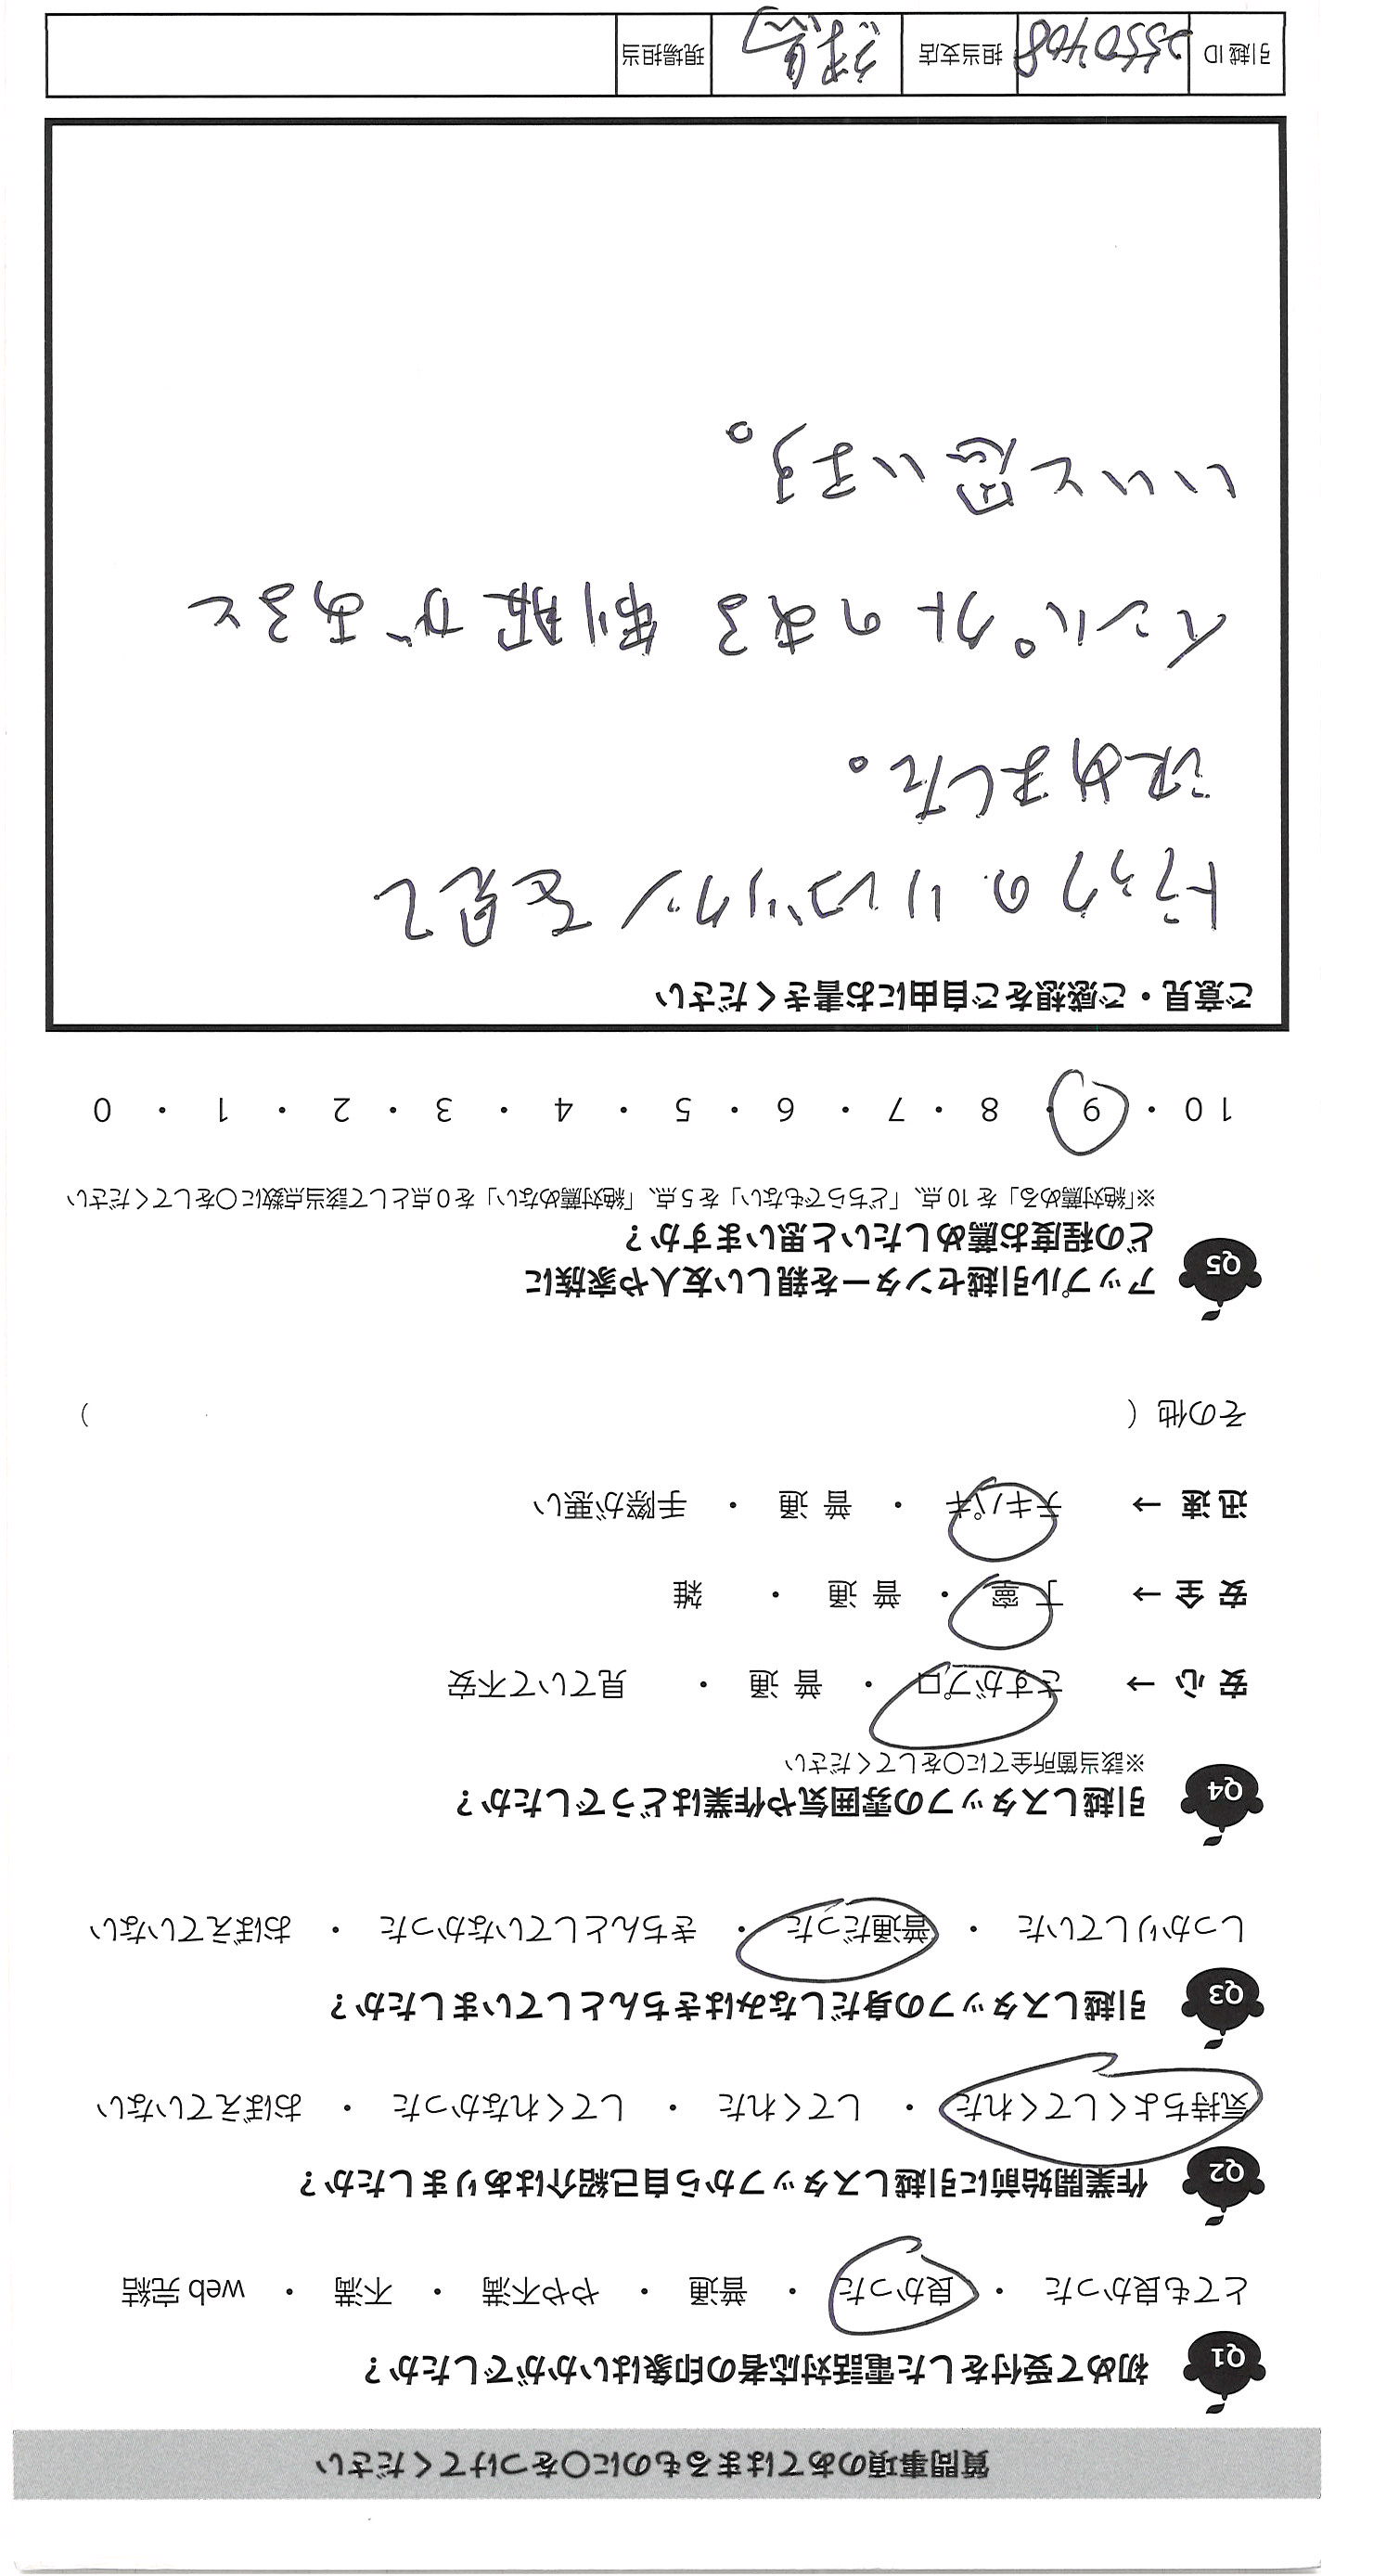 質問事項のあてはまるものに〇をつけてください
Q1 初めて受付をした電話対応者の印象はいかがでしたか？
とても良かった ・ 良かった ・ 普通 ・ やや不満 ・ 不満 ・ web 完結
Q2 作業開始前に引越しスタッフから自己紹介はありましたか？
気持ちよくしてくれた ・ してくれた ・ してくれなかった ・ おぼえていない
Q3 引越しスタッフの身だしなみはきちんとしていましたか？
しっかりしていた ・ 普通だった ・ きちんとしていなかった ・ おぼえていない
Q4 引越しスタッフの雰囲気や作業はどうでしたか？
※該当箇所全てに〇をしてください
安 心 → さすがプロ ・ 普 通 ・ 見ていて不安
安 全 → 丁 寧 ・ 普 通 ・ 雑
迅 速 → テキパキ ・ 普 通 ・ 手際が悪い
その他（ ）
Q5 アップル引越センターを親しい友人や家族に
どの程度お薦めしたいと思いますか？
※「絶対薦める」を 10 点、「どちらでもない」を 5 点、「絶対薦めない」を 0 点として該当点数に〇をしてください
10 ・ 9 ・ 8 ・ 7 ・ 6 ・ 5 ・ 4 ・ 3 ・ 2 ・ 1 ・ 0
ご意見・ご感想をご自由にお書きください
トラックのリンゴリクンを見て
決めました。
インパクトのある制服があると
いいと思います。
引越 ID 2550408 担当支店 現場担当